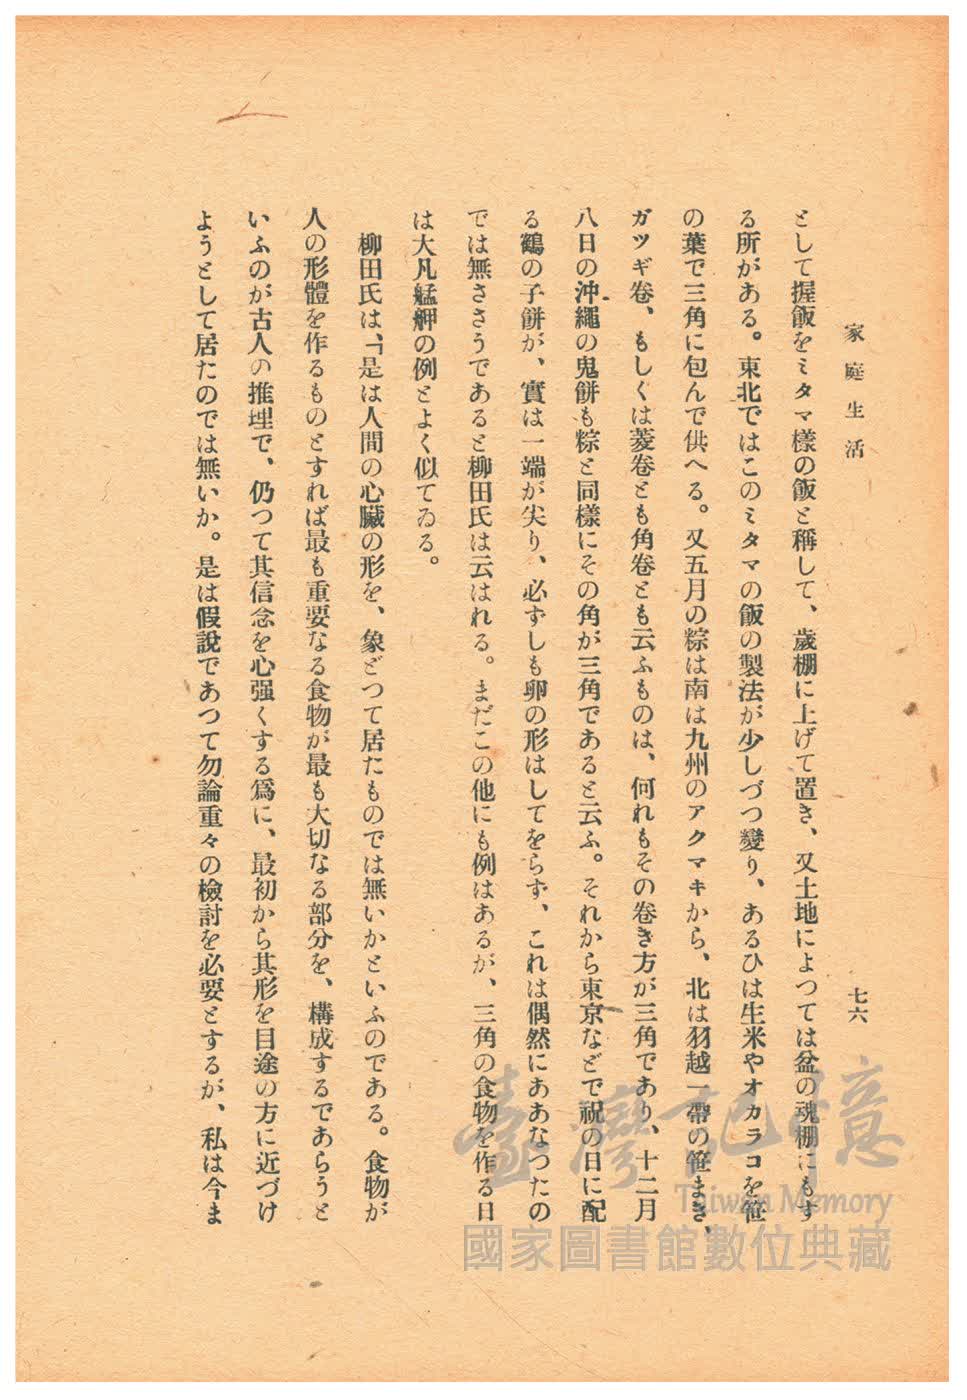 家庭生活
七六
として握飯をミタマ樣の飯と稱して、歲棚に上げて置き、又土地によつては盆の魂棚にもす
る所がある。東北ではこのミタマの飯の製法が少しづつ變り、あるひは生米やオカラコを笹
の葉で三角に包んで供へる。又五月の粽は南は九州のアクマキから、北は羽越一帶の笹まき、
ガツギ卷、もしくは菱卷とも角卷とも云ふものは、何れもその卷き方が三角であり、十二月
八日の沖繩の鬼餠も粽と同樣にその角が三角であると云ふ。それから東京などで祝の日に配
る鶴の子餠が、實は一端が尖り、必ずしも卵の形はしてをらず、これは偶然にああなつたの
では無ささうであると柳田氏は云はれる。まだこの他にも例はあるが、三角の食物を作る日
は大凡艋舺の例とよく似てゐる。
柳田氏は、「是は人間の心臟の形を、象どつて居たものでは無いかといふのである。食物が
人の形體を作るものとすれば最も重要なる食物が最も大切なる部分を、構成するであらうと
いふのが古人の推理で、仍つて其信念を心强くする爲に、最初から其形を目途の方に近づけ
ようとして居たのでは無いか。是は假說であつて勿論重々の檢討を必要とするが、私は今ま
臺灣記憶
Taiwan Memory
國家圖書館數位典藏